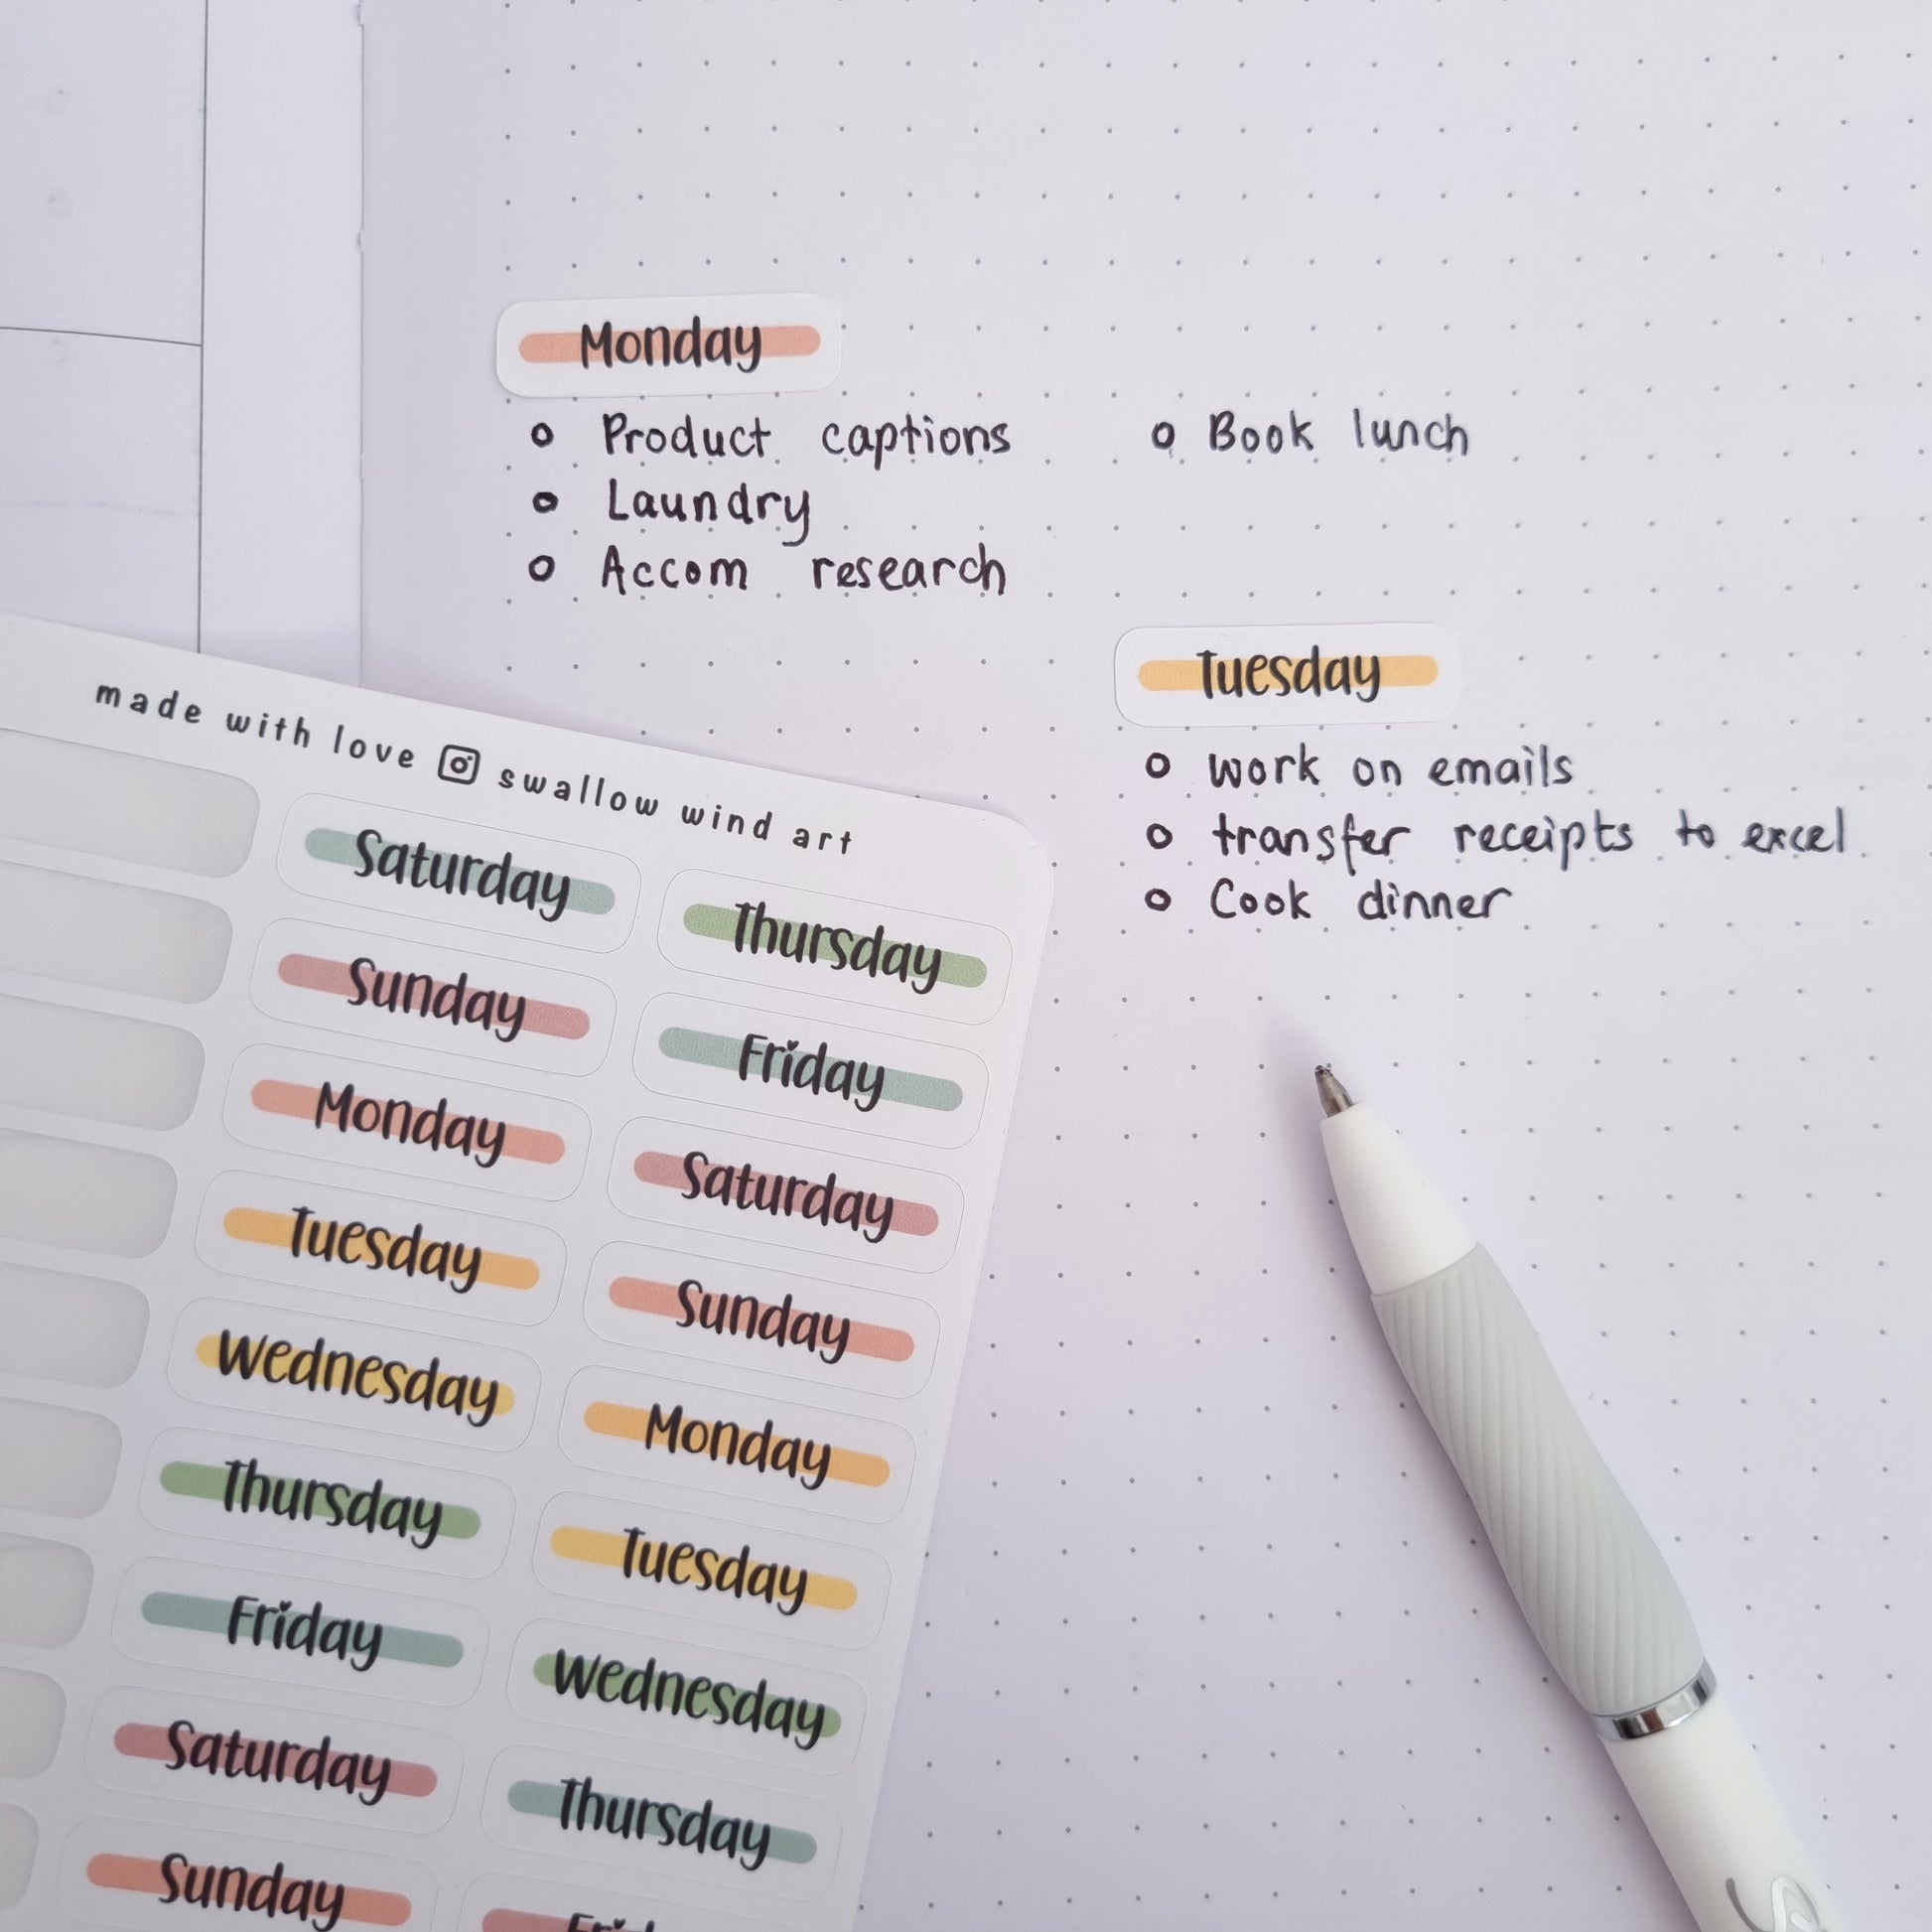 Monday
Product captions
Laundry
Accom research
Book lunch
Tuesday
work on emails
transfer receipts to excel
Cook dinner
made with love swallow wind art
Saturday
Sunday
Monday
Tuesday
Wednesday
Thursday
Friday
Saturday
Sunday
Thursday
Friday
Saturday
Sunday
Monday
Tuesday
Wednesday
Thursday